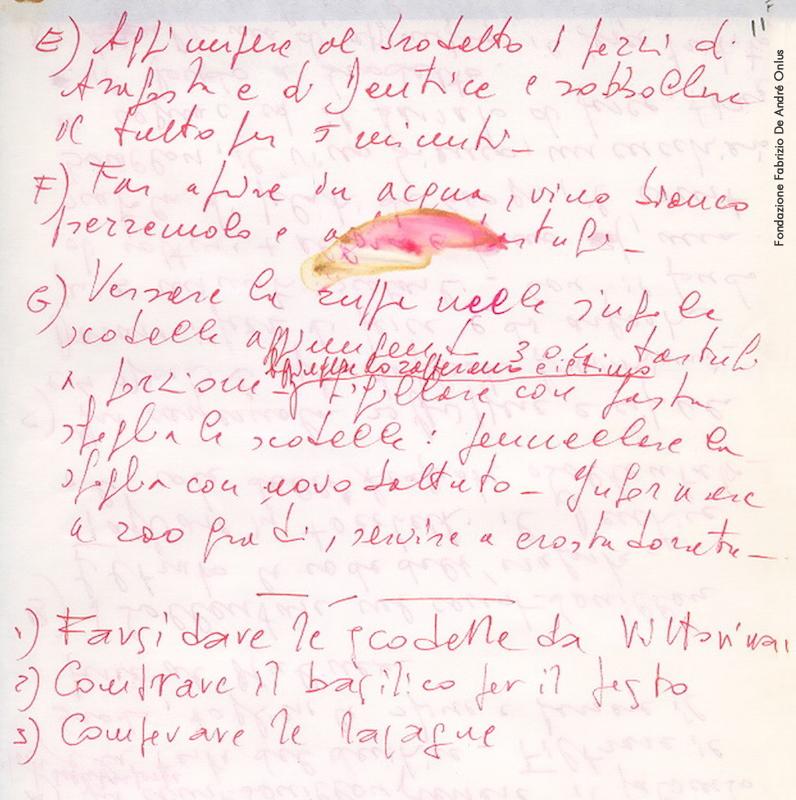 11
E) Aggiungere al brodetto i pezzi di
Aragosta e di Dentice e sobbollire
il tutto per 5 minuti_
F) Far aprire in acqua, vino bianco
prezzemolo e tartufi_
G) Versare la zuppa nelle singole
scodelle aggiungendo 3 o 4 tartufi
a porzione_ Sigillare con pasta
zafferano e il timo
sfoglia le scodelle: pennellare la
sfoglia con uovo battuto_ Infornare
a 200 gradi, servire a crosta dorata_
1) Farsi dare le scodelle da Vittorina
2) Comprare il basilico per il pesto
3) Comperare le lasagne
Fondazione Fabrizio De André Onlus